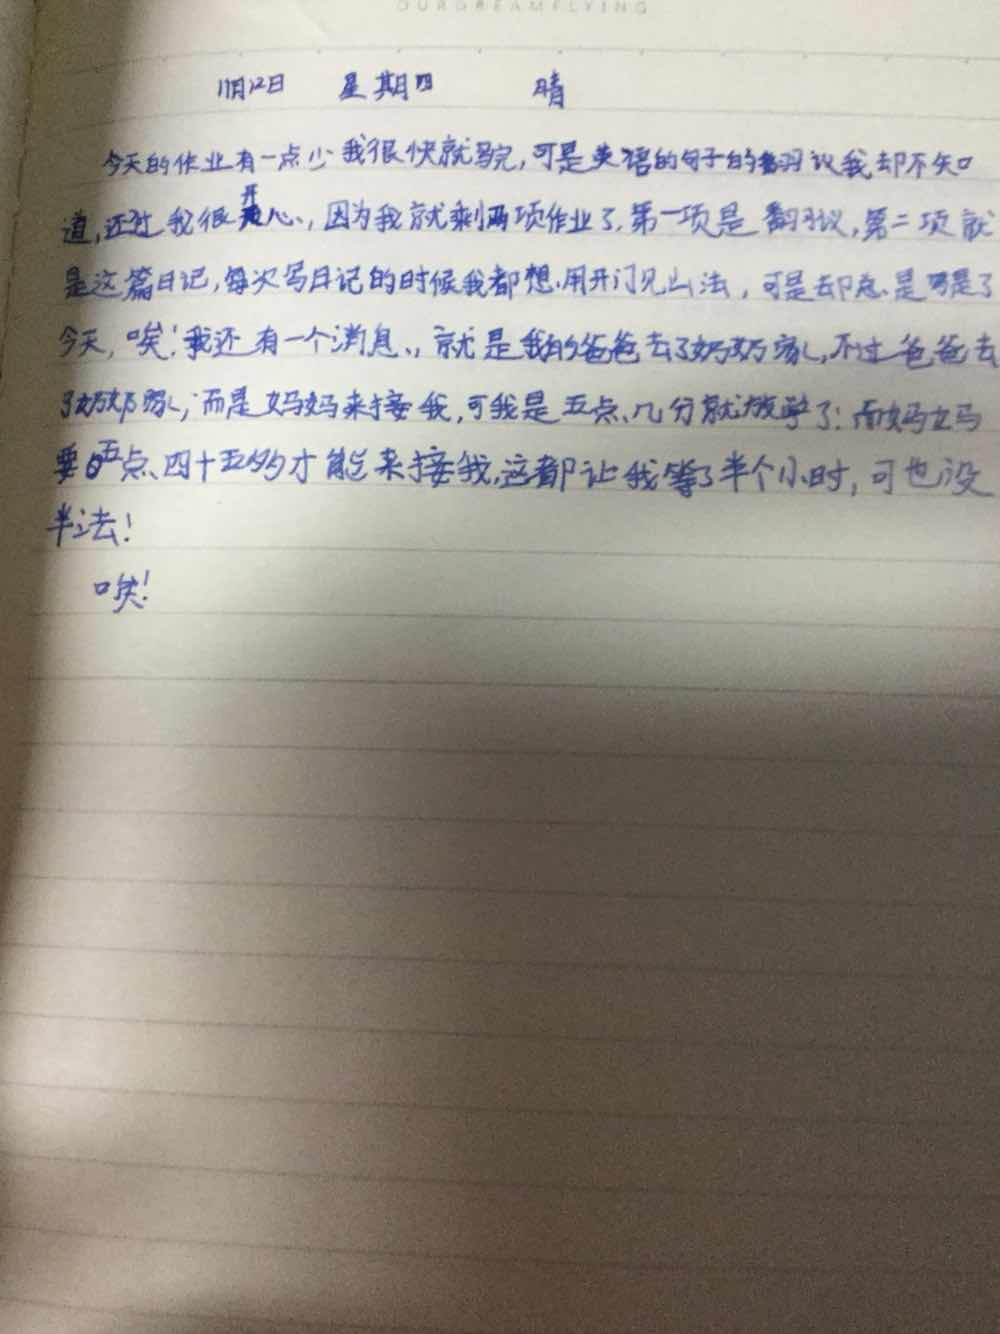 OURDREAMFLYING
11月12日 星期四 晴
今天的作业有一点少我很快就写完,可是英语的句子的翻议我却不知
道,还过我很开心、,因为我就剩两项作业了,第一项是翻议,第二项就
是这篇日记,每次写日记的时候我都想、用开门见山法,可是却总、是
今天,唉!我还有一个消息、,就是我的爸爸去了奶奶家,不过爸爸去
了奶奶家,而是妈妈来接我,可我是五点、几分就放学了:而妈妈
要五点、四十五多才能来接我,这都让我等了半个小时,可也没
半法!
唉!